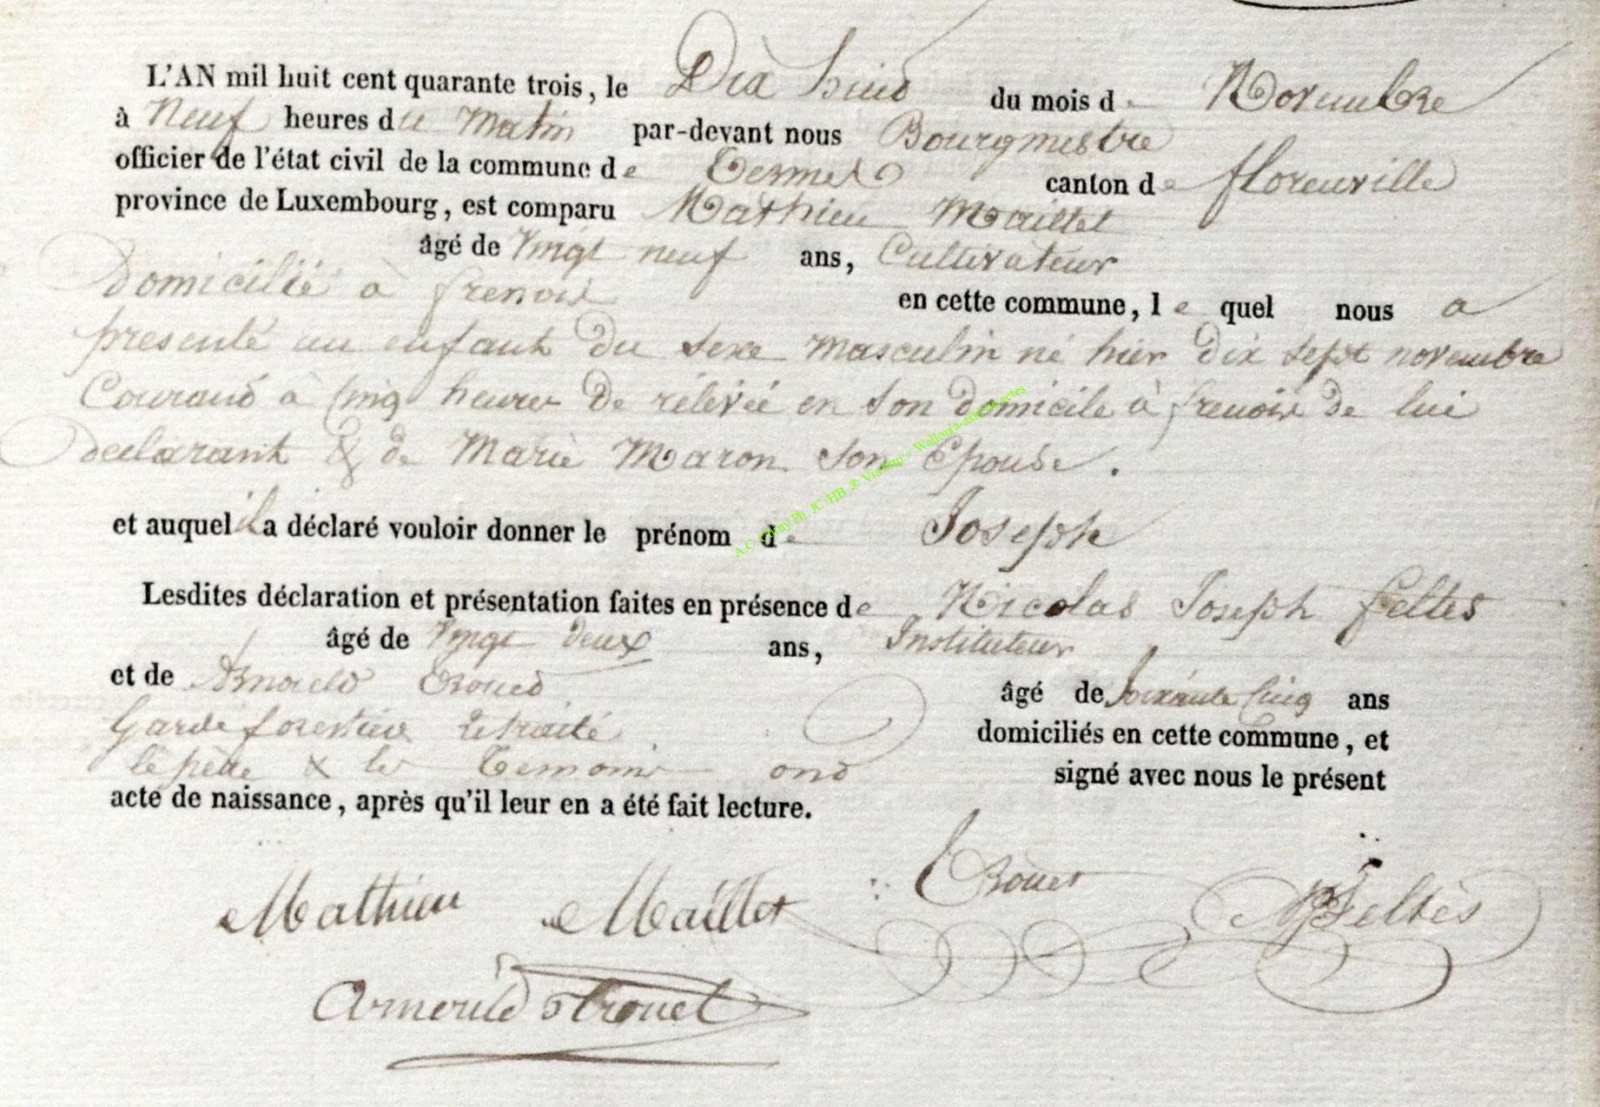 L'AN mil huit cent quarante trois, le Dix huit du mois de Novembre
à Neuf heures du Matin par-devant nous Bourgmestre
officier de l'état civil de la commune de Termes canton de florenville
province de Luxembourg, est comparu Mathieu Maillet
âgé de Vingt neuf ans, Cultivateur
Domicilié à frenois en cette commune, le quel nous a
présenté un enfant du sexe masculin né hier dix sept novembre
Courant à Cinq heures de rélévée en son domicile à frenois de lui
declarant & de Marie Maron son Epouse.
et auquel il a déclaré vouloir donner le prénom de Joseph
Lesdites déclaration et présentation faites en présence de Nicolas Joseph feltes
âgé de Vingt deux ans, Instituteur
et de Arnould âgé de Soixante Cinq ans
Garde forestier retraité domiciliés en cette commune, et
le père & les Temoins ont signé avec nous le présent
acte de naissance, après qu'il leur en a été fait lecture.
Mathieu Maillet
NJFeltès